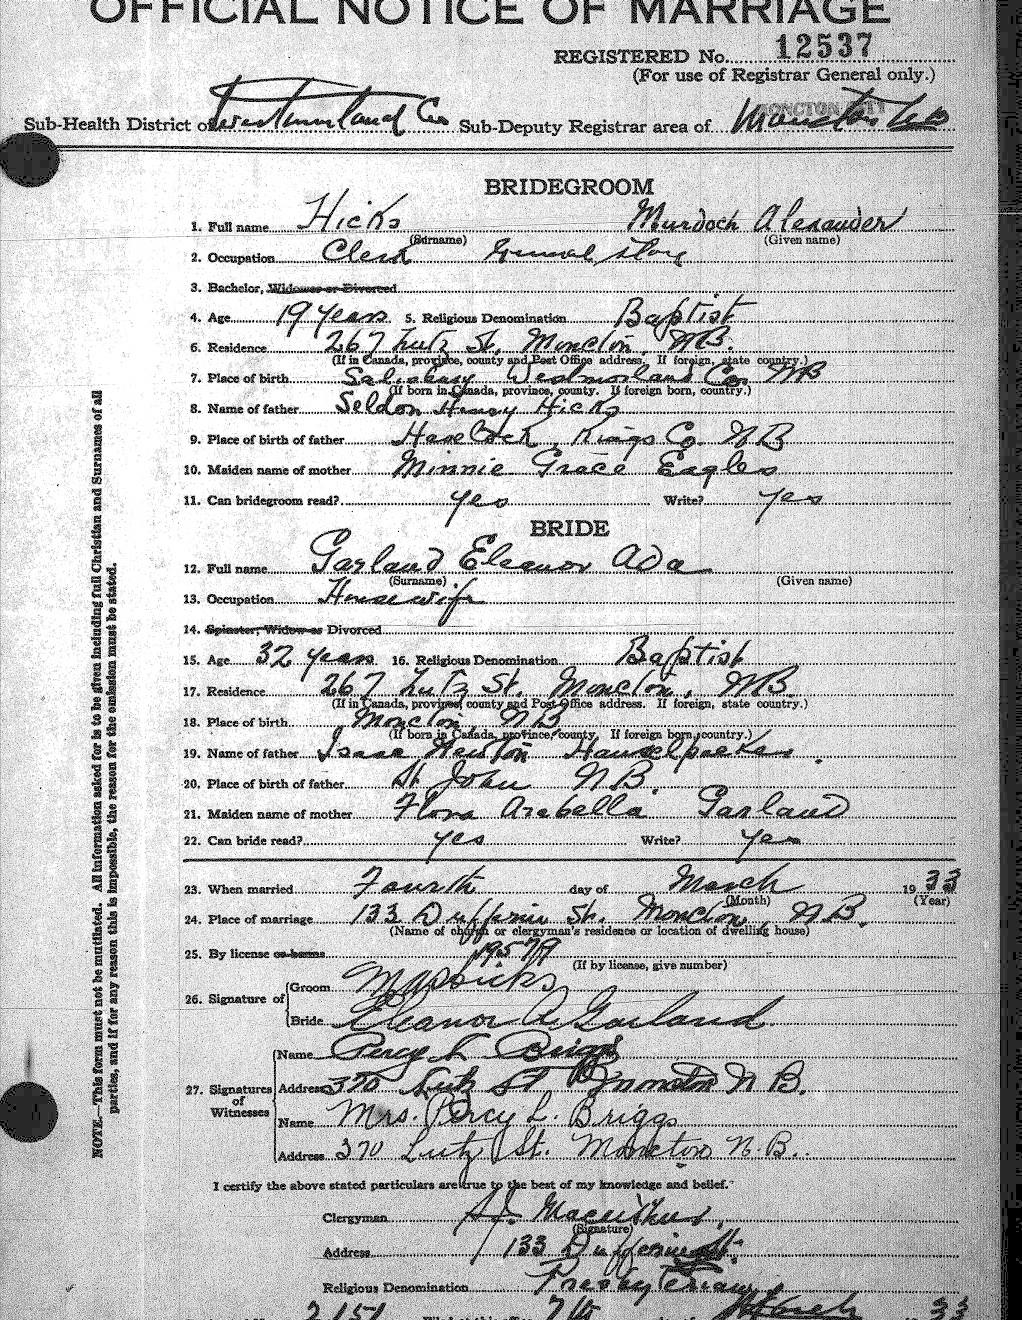 OFFICIAL NOTICE OF MARRIAGE
REGISTERED No. 12537
(For use of Registrar General only.)
MONCTON CITY
Sub-Health District of Westmorland Co Sub-Deputy Registrar area of Moncton NB
BRIDEGROOM
1. Full name Hicks Murdoch Alexander
(Surname) (Given name)
2. Occupation Clerk General Store
3. Bachelor, Widower or Divorced
4. Age 19 years 5. Religious Denomination Baptist
6. Residence 267 Lutz St, Moncton, NB.
(If in Canada, province, county and Post Office address. If foreign, state country.)
7. Place of birth Salisbury Westmorland Co. NB
(If born in Canada, province, county. If foreign born, country.)
8. Name of father Seldon Henry Hicks
9. Place of birth of father Havelock, Kings Co. NB
10. Maiden name of mother Minnie Grace Eagles
11. Can bridegroom read? yes Write? yes
BRIDE
12. Full name Garland Eleanor Ada
(Surname) (Given name)
13. Occupation Housewife
14. Spinster, Widow or Divorced
15. Age 32 years 16. Religious Denomination Baptist
17. Residence 267 Lutz St. Moncton, NB.
(If in Canada, province, county and Post Office address. If foreign, state country.)
18. Place of birth Moncton, NB
(If born in Canada, province, county. If foreign born, country.)
19. Name of father Isaac Newton
20. Place of birth of father St. John NB.
21. Maiden name of mother Flora Arabella Garland
22. Can bride read? yes Write? yes
23. When married Fourth day of March 1933
(Month) (Year)
24. Place of marriage 133 Dufferin St. Moncton, NB.
(Name of church or clergyman's residence or location of dwelling house)
25. By license or banns
(If by license, give number)
26. Signature of Groom
Bride Eleanor A Garland
27. Signatures of Witnesses
Name Percy L Briggs
Address 370 Lutz St Moncton N B.
Name Mrs. Percy L. Briggs
Address 370 Lutz St. Moncton N.B.
I certify the above stated particulars are true to the best of my knowledge and belief.
Clergyman
(Signature)
Address 133 Dufferin St.
Religious Denomination Presbyterian
2151 7th March 33
NOTE.—This form must not be mutilated. All information asked for is to be given including full Christian and Surnames of all
parties, and if for any reason this is impossible, the reason for the omission must be stated.